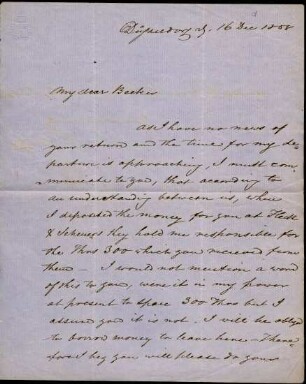 Dusseldorf, 16 Dec 1858
My dear Becker
As I have no news of
your return and the time for my de-
parture is approaching, I must com-
municate to you, that according to
an understanding between us, when
I deposited the money for you at
& Scheuer they hold me responsible for
the Thrs 300 which you received from
them – I would not mention a word
of this to you, were it in my power
at present to spare 300 Thrs but I
assure you it is not. I will be obliged
to borrow money to leave here – There-
fore I beg you will please do your